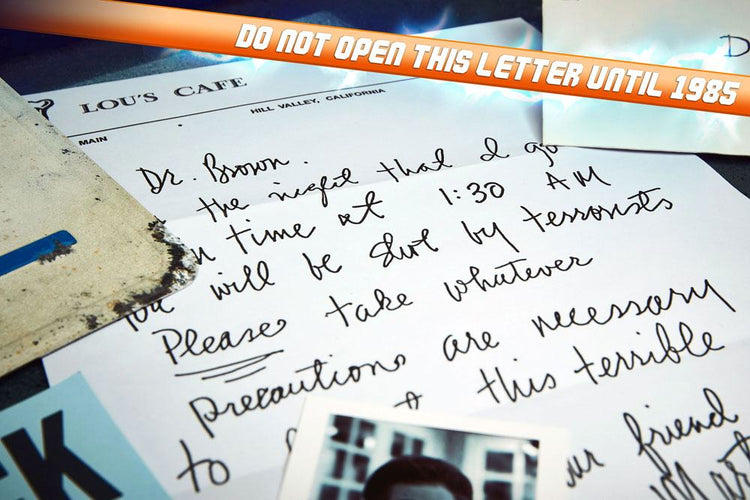 DO NOT OPEN THIS LETTER UNTIL 1985
D
LOU'S CAFE
HILL VALLEY, CALIFORNIA
MAIN
Dr. Brown.
the night that I go
n time at 1:30 AM
You will be shot by terrorists
Please take whatever
precautions are necessary
to this terrible
ur friend
Mart
CK